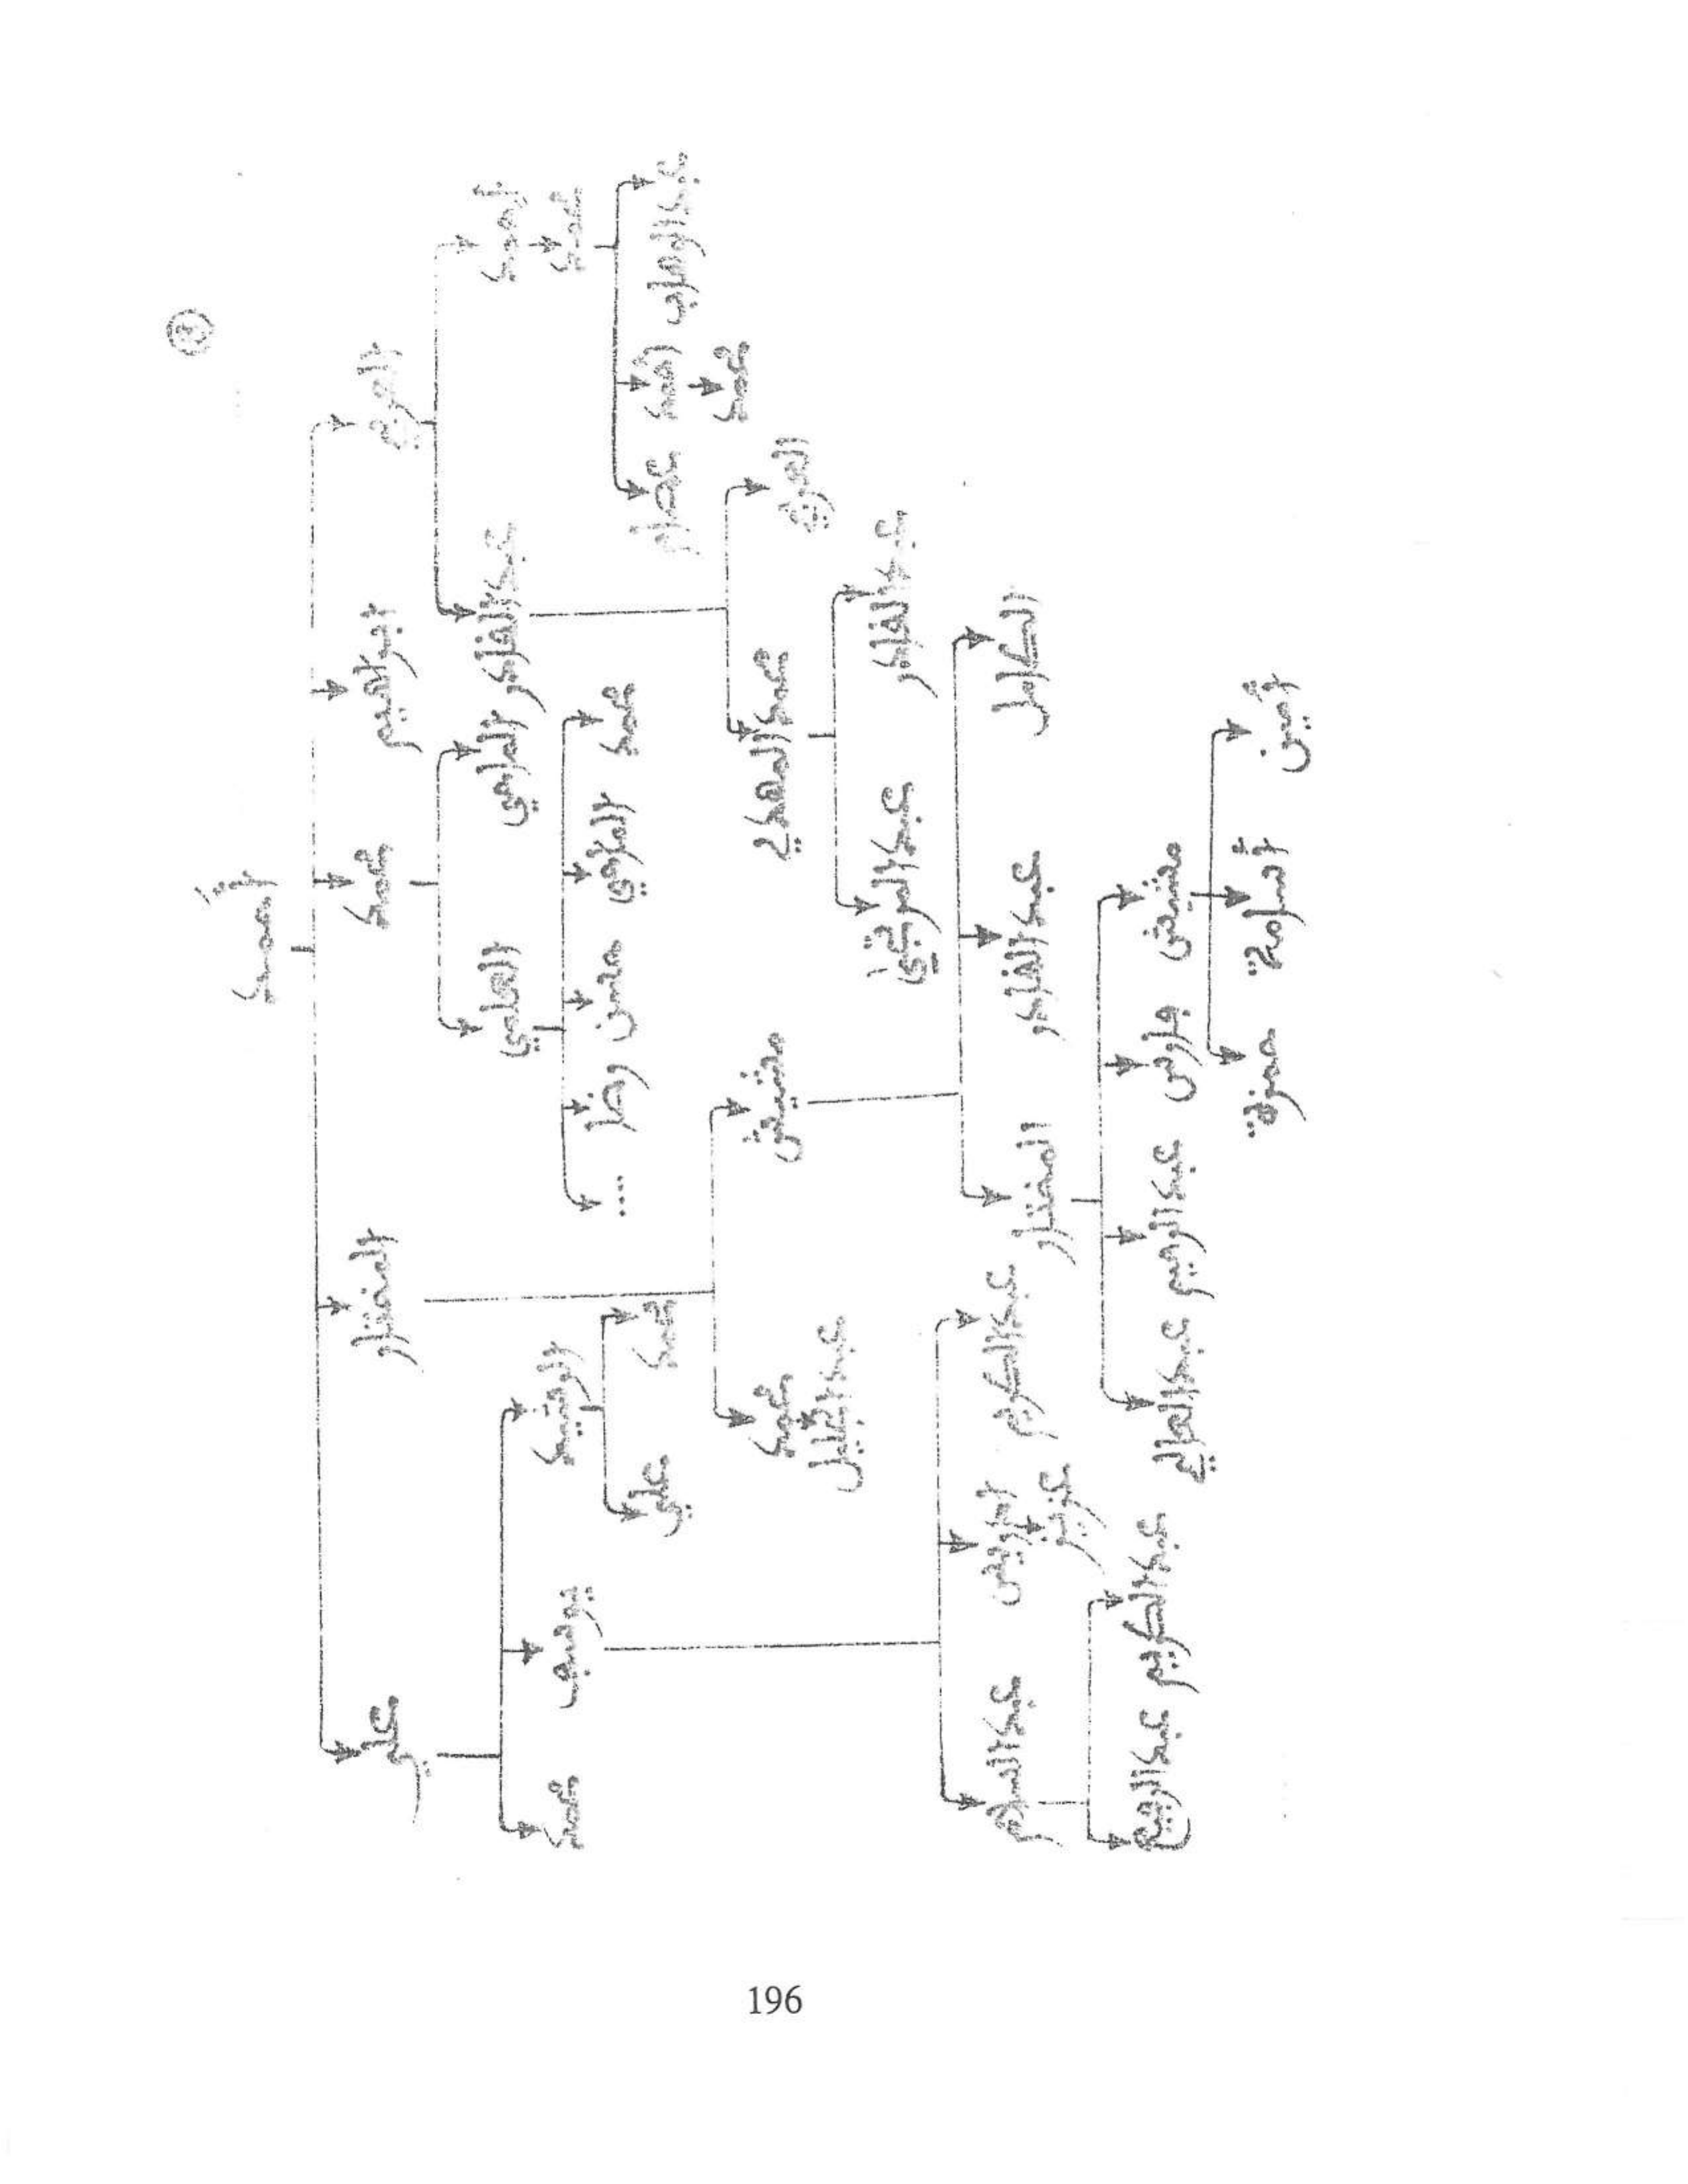 أحمد
العربي
ابراهيم
محمد
المختار
علي
أحمد
عبد القادر
المامي
العلمي
الرشيد
يوسف
محمد
محمد
محمد
المكي
محسن
رضا
....
محمد
علي
عبد الوهاب
أحمد
عصام
محمد
العربي
محمد المهدي
مشيش
محمد
عبد الجليل
عبد القادر
عبد النبي
الكامل
عبد القادر
المختار
عبد الكريم
ادريس
عبد السلام
عزيز
مشيش
فارس
عبد الرحيم
عبد العالي
عبد الكريم
عبد الرفيع
أمين
أسامة
حمزة
196